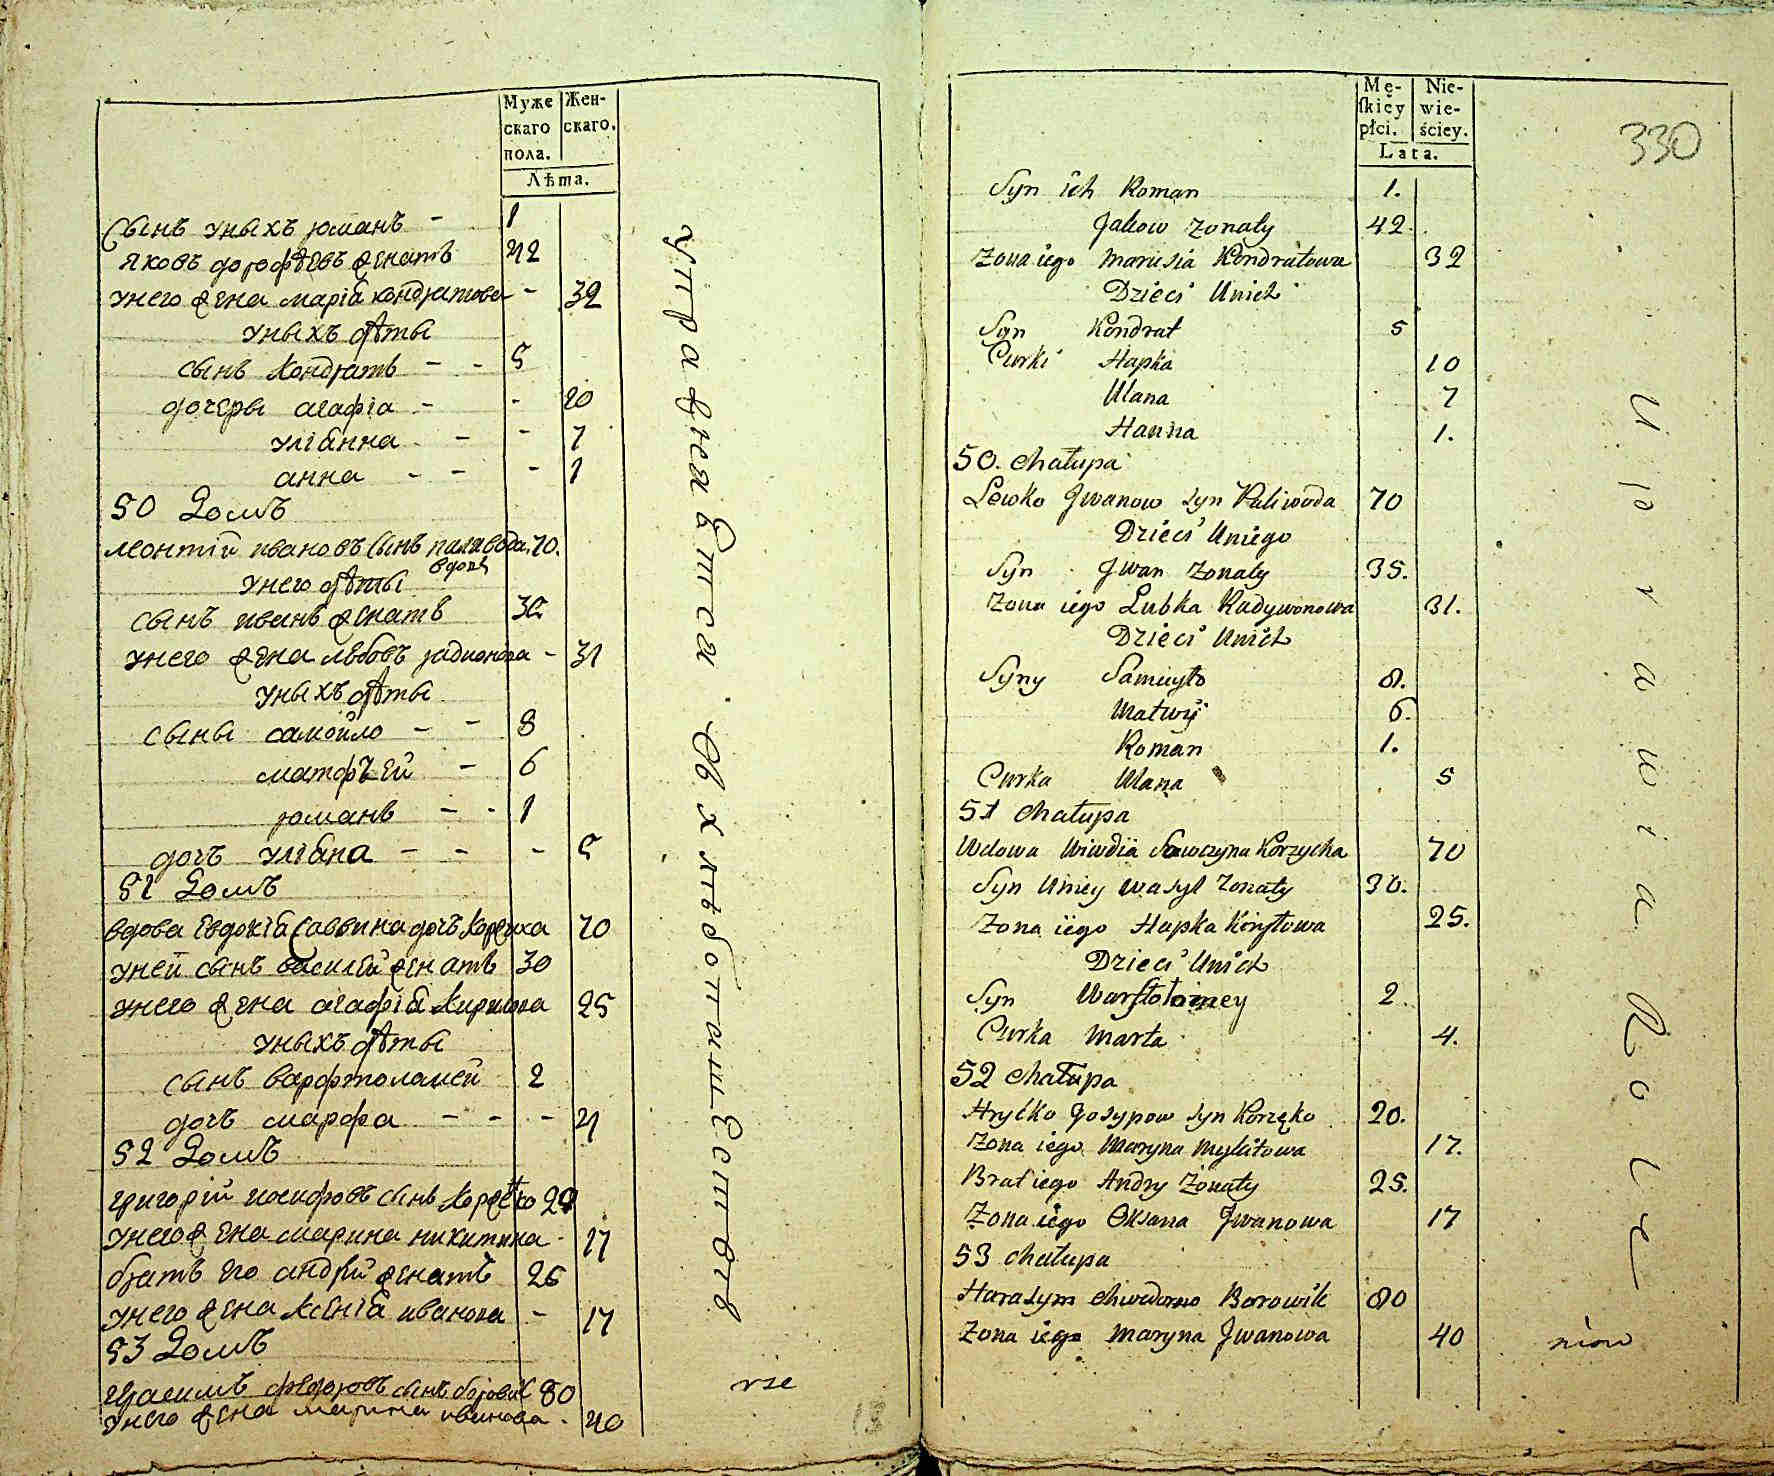 Муже
скаго
пола.
Жен-
скаго.
Лѣта.
Сынъ уныхъ романъ - 1
яковъ дорофѣевъ женатъ 42
унего жена марїа кондратова - 32
уныхъ дѣты
сынъ кондратъ - - 5
дочеры агафїа - - 10
улїанна - - 7
анна - - - 1
50 Домъ
леонтїй ивановъ сынъ паливода 70.
вдовъ
унего дѣты
сынъ иванъ женатъ 35
унего жена любовъ радионова - 31
уныхъ дѣты
сыны самойло - - 8
матфѣй - 6
романъ - - 1
дочъ улїана - - - 5
51 Домъ
вдова Евдокїа Саввина дочъ Коржиха 70
уней сынъ василїй женатъ 30
унего жена агафїа Кирилова 25
уныхъ дѣты
сынъ варфтоломей 2
дочъ марфа - - - 4
52 Домъ
григорїй иосифовъ сынъ Коржко 20
унего жена марина никитина - 17
братъ его андрїй женатъ 25
унего жена Ксенїа иванова - 17
53 Домъ
гарасимъ федоровъ сынъ боровик 80
унего жена марина иванова - 40
управляется Охлѣботашествѣ
rze
13
Mę-
ſkiéy
płci.
Nie-
wie-
ściey.
Lata.
330
Syn ich Roman 1.
Jakow żonaty 42.
Żona iego Marusia Kondratowa 32
Dzieci Unich
Syn Kondrat 5
Curki Hapka 10
Ulana 7
Hanna 1.
50. Chałupa
Lewko Jwanow syn Paliwoda 70
Dzieci Uniego
Syn Jwan żonaty 35.
Żona iego Lubka Radywonowa 31.
Dzieci Unich
Syny Samuyło 8.
Matwij 6.
Roman 1.
Curka Ulana 5
51 Chałupa
Wdowa Wiwdia Sawczyna Korzycha 70
Syn Uniey Wasyl żonaty 30.
Żona iego Hapka Kiryłowa 25.
Dzieci Unich
Syn Warftołomey 2
Curka Marta 4.
52 Chałupa
Hryćko Josypow syn Korzęko 20.
Żona iego Maryna Mykitowa 17.
Brat iego Andry Żonaty 25.
Żona iego Oksana Jwanowa 17
53 Chałupa
Harasym Chwedorow Borowik 80
Żona iego Maryna Jwanowa 40
Uprawia Role
niow